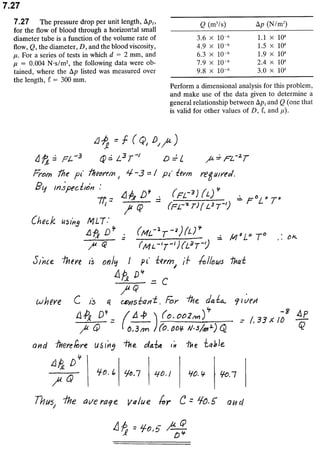 7.27
7.27 The pressure drop per unit length, Δpℓ,
for the flow of blood through a horizontal small
diameter tube is a function of the volume rate of
flow, Q, the diameter, D, and the blood viscosity,
μ. For a series of tests in which d = 2 mm, and
μ = 0.004 N·s/m², the following data were ob-
tained, where the Δp listed was measured over
the length, ℓ = 300 mm.
Q (m³/s) Δp (N/m²)
3.6 × 10⁻⁶ 1.1 × 10⁴
4.9 × 10⁻⁶ 1.5 × 10⁴
6.3 × 10⁻⁶ 1.9 × 10⁴
7.9 × 10⁻⁶ 2.4 × 10⁴
9.8 × 10⁻⁶ 3.0 × 10⁴
Perform a dimensional analysis for this problem,
and make use of the data given to determine a
general relationship between Δpℓ and Q (one that
is valid for other values of D, ℓ, and μ).
Δpℓ = f (Q, D, μ)
Δpℓ ≐ FL⁻³ Q ≐ L³T⁻¹ D ≐ L μ ≐ FL⁻²T
From the pi theorem, 4-3 = 1 pi term required.
By inspection:
π₁ = Δpℓ D⁴ / μ Q ≐ (FL⁻³)(L)⁴ / (FL⁻²T)(L³T⁻¹) ≐ F⁰L⁰T⁰
Check using MLT:
Δpℓ D⁴ / μ Q ≐ (ML⁻²T⁻²)(L)⁴ / (ML⁻¹T⁻¹)(L³T⁻¹) ≐ M⁰L⁰T⁰ ∴ OK
Since there is only 1 pi term, it follows that
Δpℓ D⁴ / μ Q = C
where C is a constant. For the data given
Δpℓ D⁴ / μ Q = (Δp / 0.3m) (0.002m)⁴ / (0.004 N·s/m²) Q = 1.33 × 10⁻⁸ Δp / Q
and therefore using the data in the table
Δpℓ D⁴ / μ Q | 40.6 | 40.7 | 40.1 | 40.4 | 40.7
Thus, the average value for C = 40.5 and
Δpℓ = 40.5 μ Q / D⁴